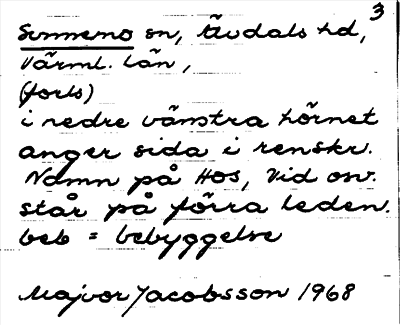 3
Sunnemo sn, Älvdals hd,
Värml. län,
(forts)
i nedre vänstra hörnet
anger sida i renskr.
Namn på Hos, Vid osv.
står på förra leden.
beb = bebyggelse
Majvor Jacobsson 1968